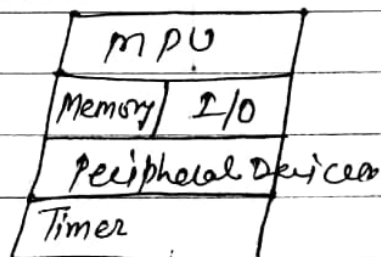 MPU
Memory I/O
Peripheral Devices
Timer